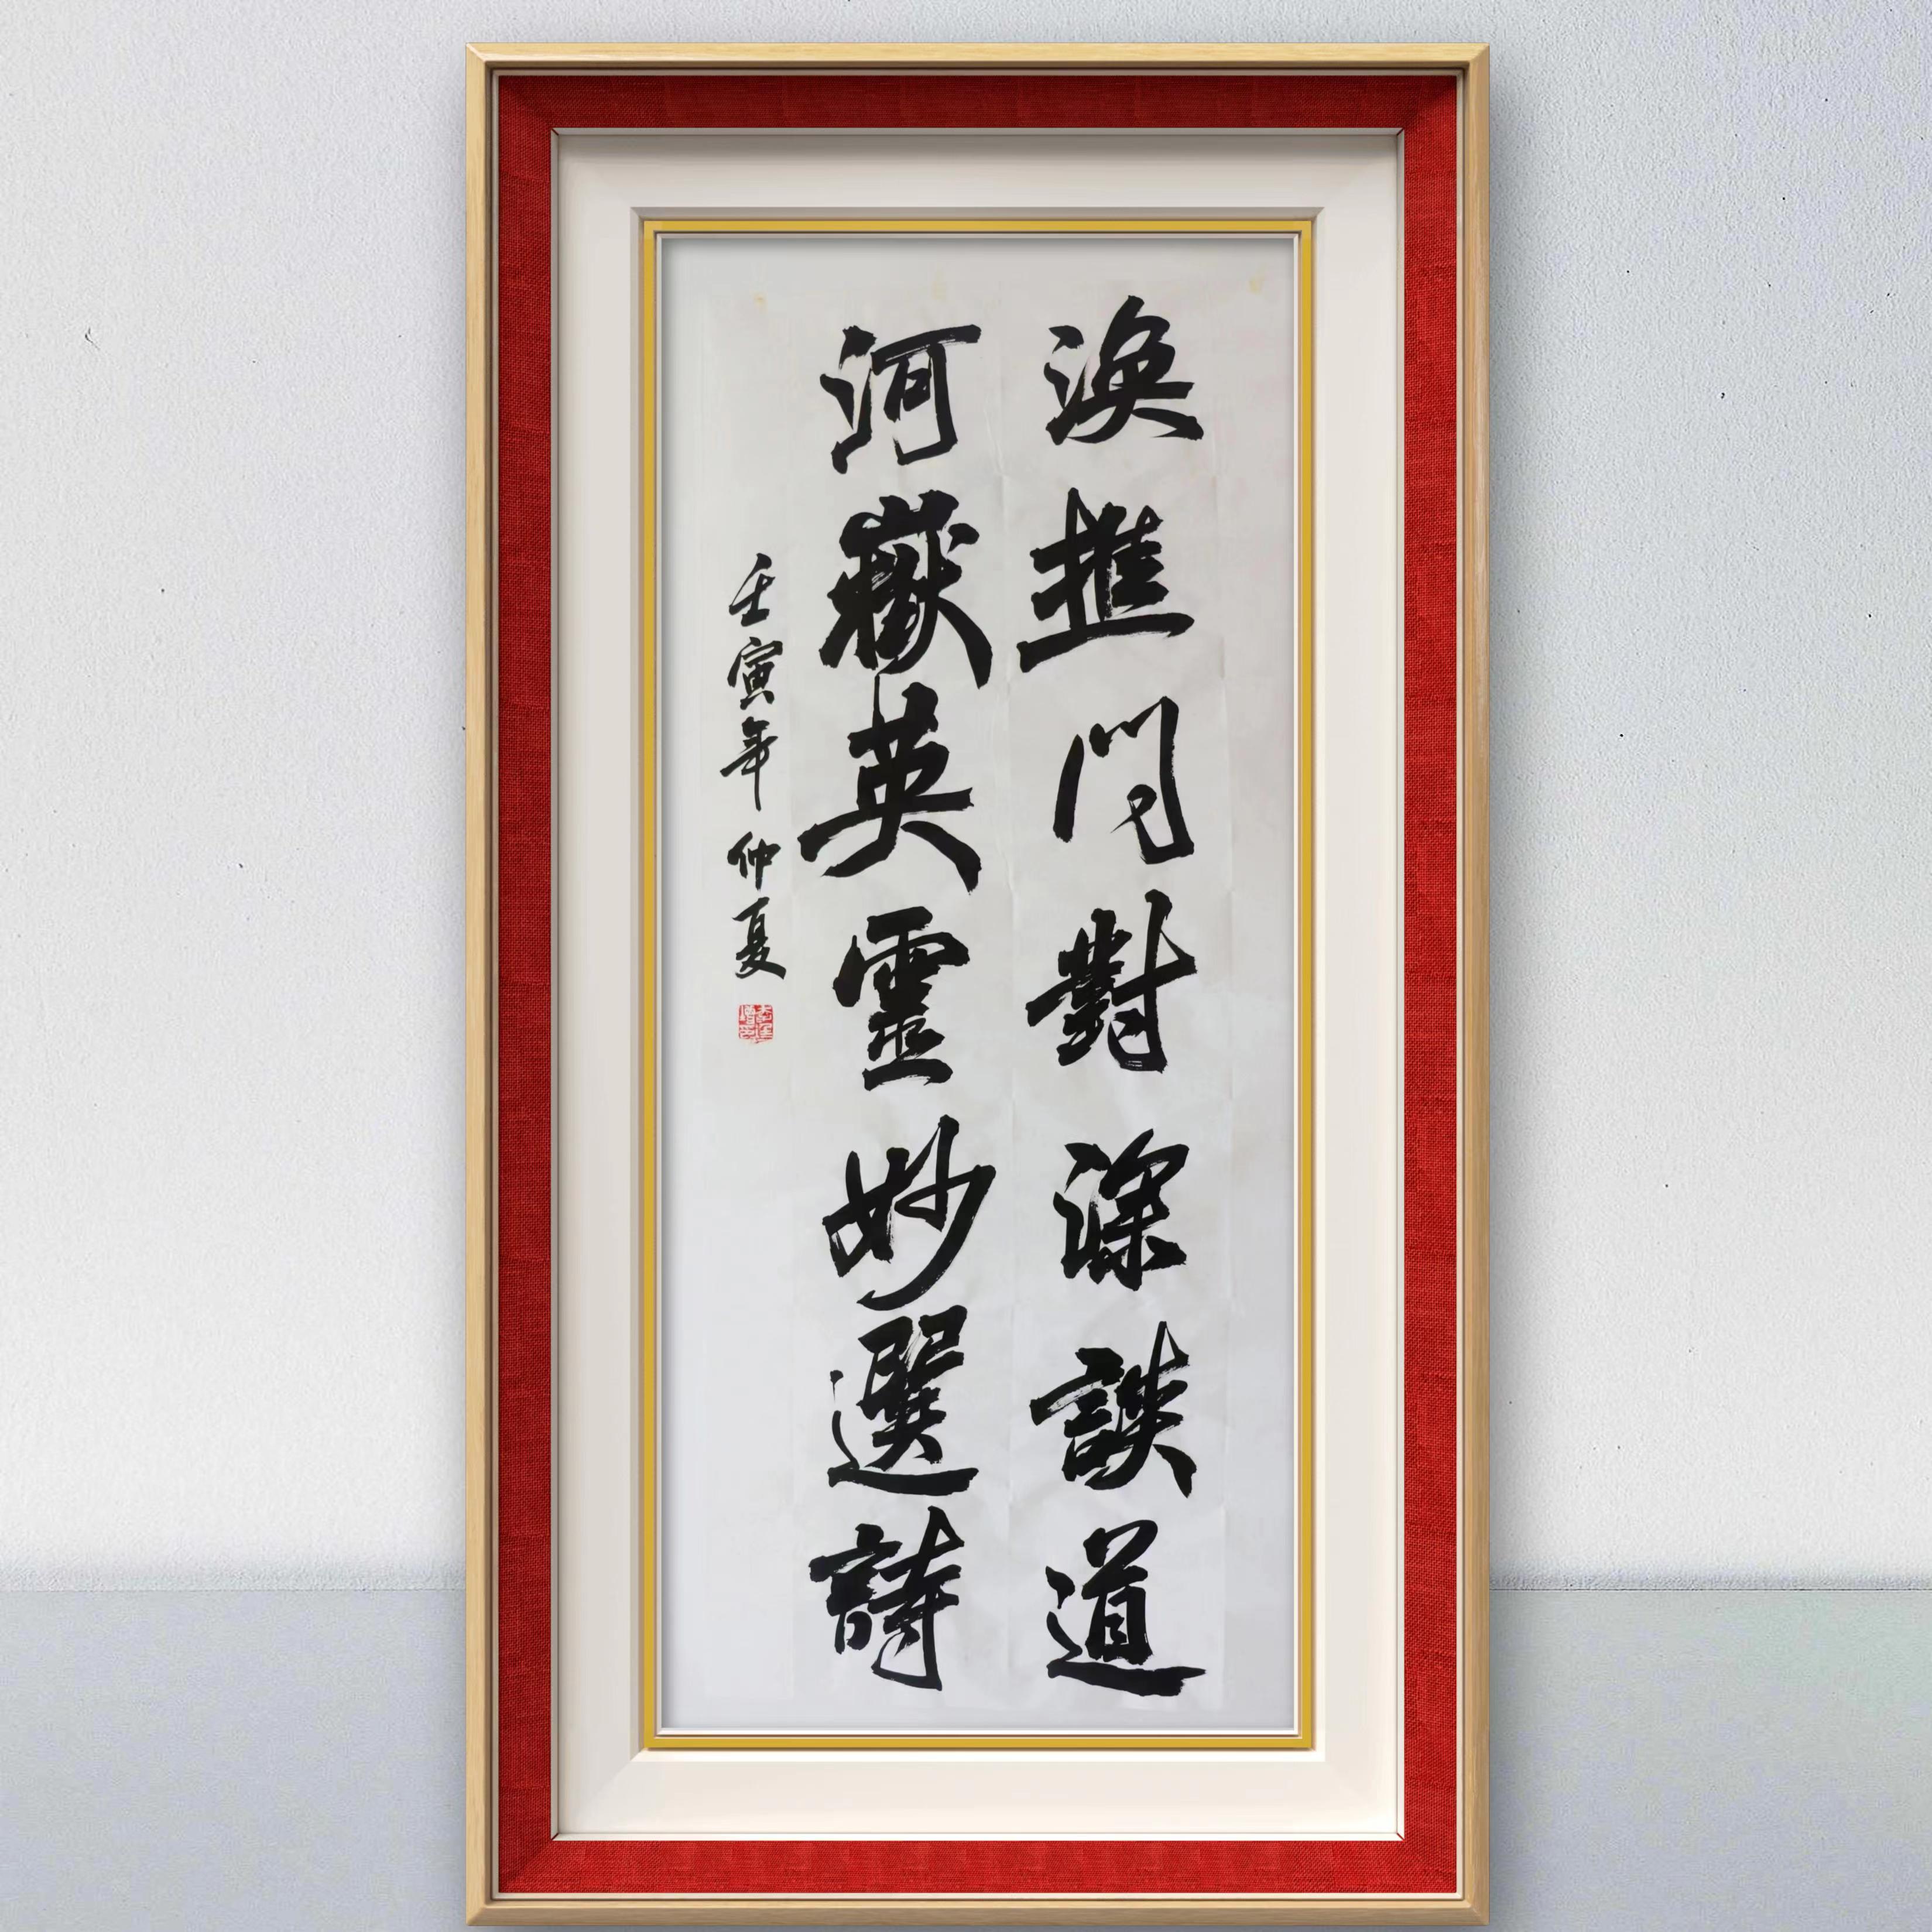 渙推問對深談道
河嶽英靈妙選詩
壬寅年仲夏